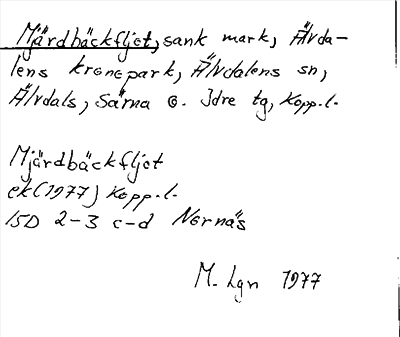 Mjärdbäckfljot, sank mark, Älvda-
lens kronopark, Älvdalens sn,
Älvdals, Särna o. Idre tg, Kopp.l.
Mjärdbäckfljot
ek (1977) Kopp.l.
15D 2-3 c-d Nornäs
M. Lgn 1977